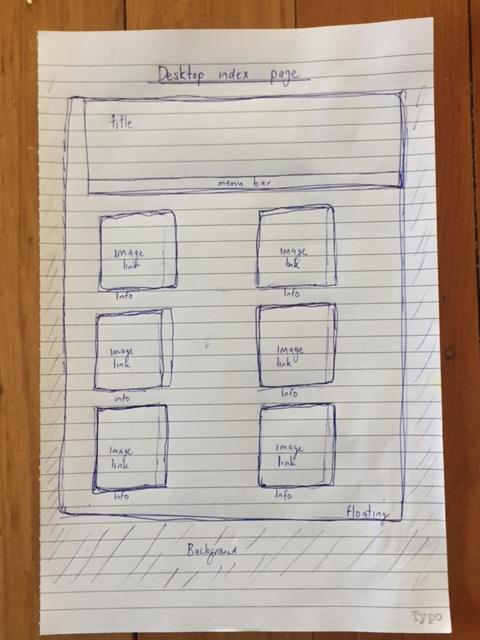 Desktop index page
title
menu bar
Image
link
Image
link
Info
Info
Image
link
Image
link
Info
Info
Image
link
Image
link
Info
Info
floating
Background
Typo